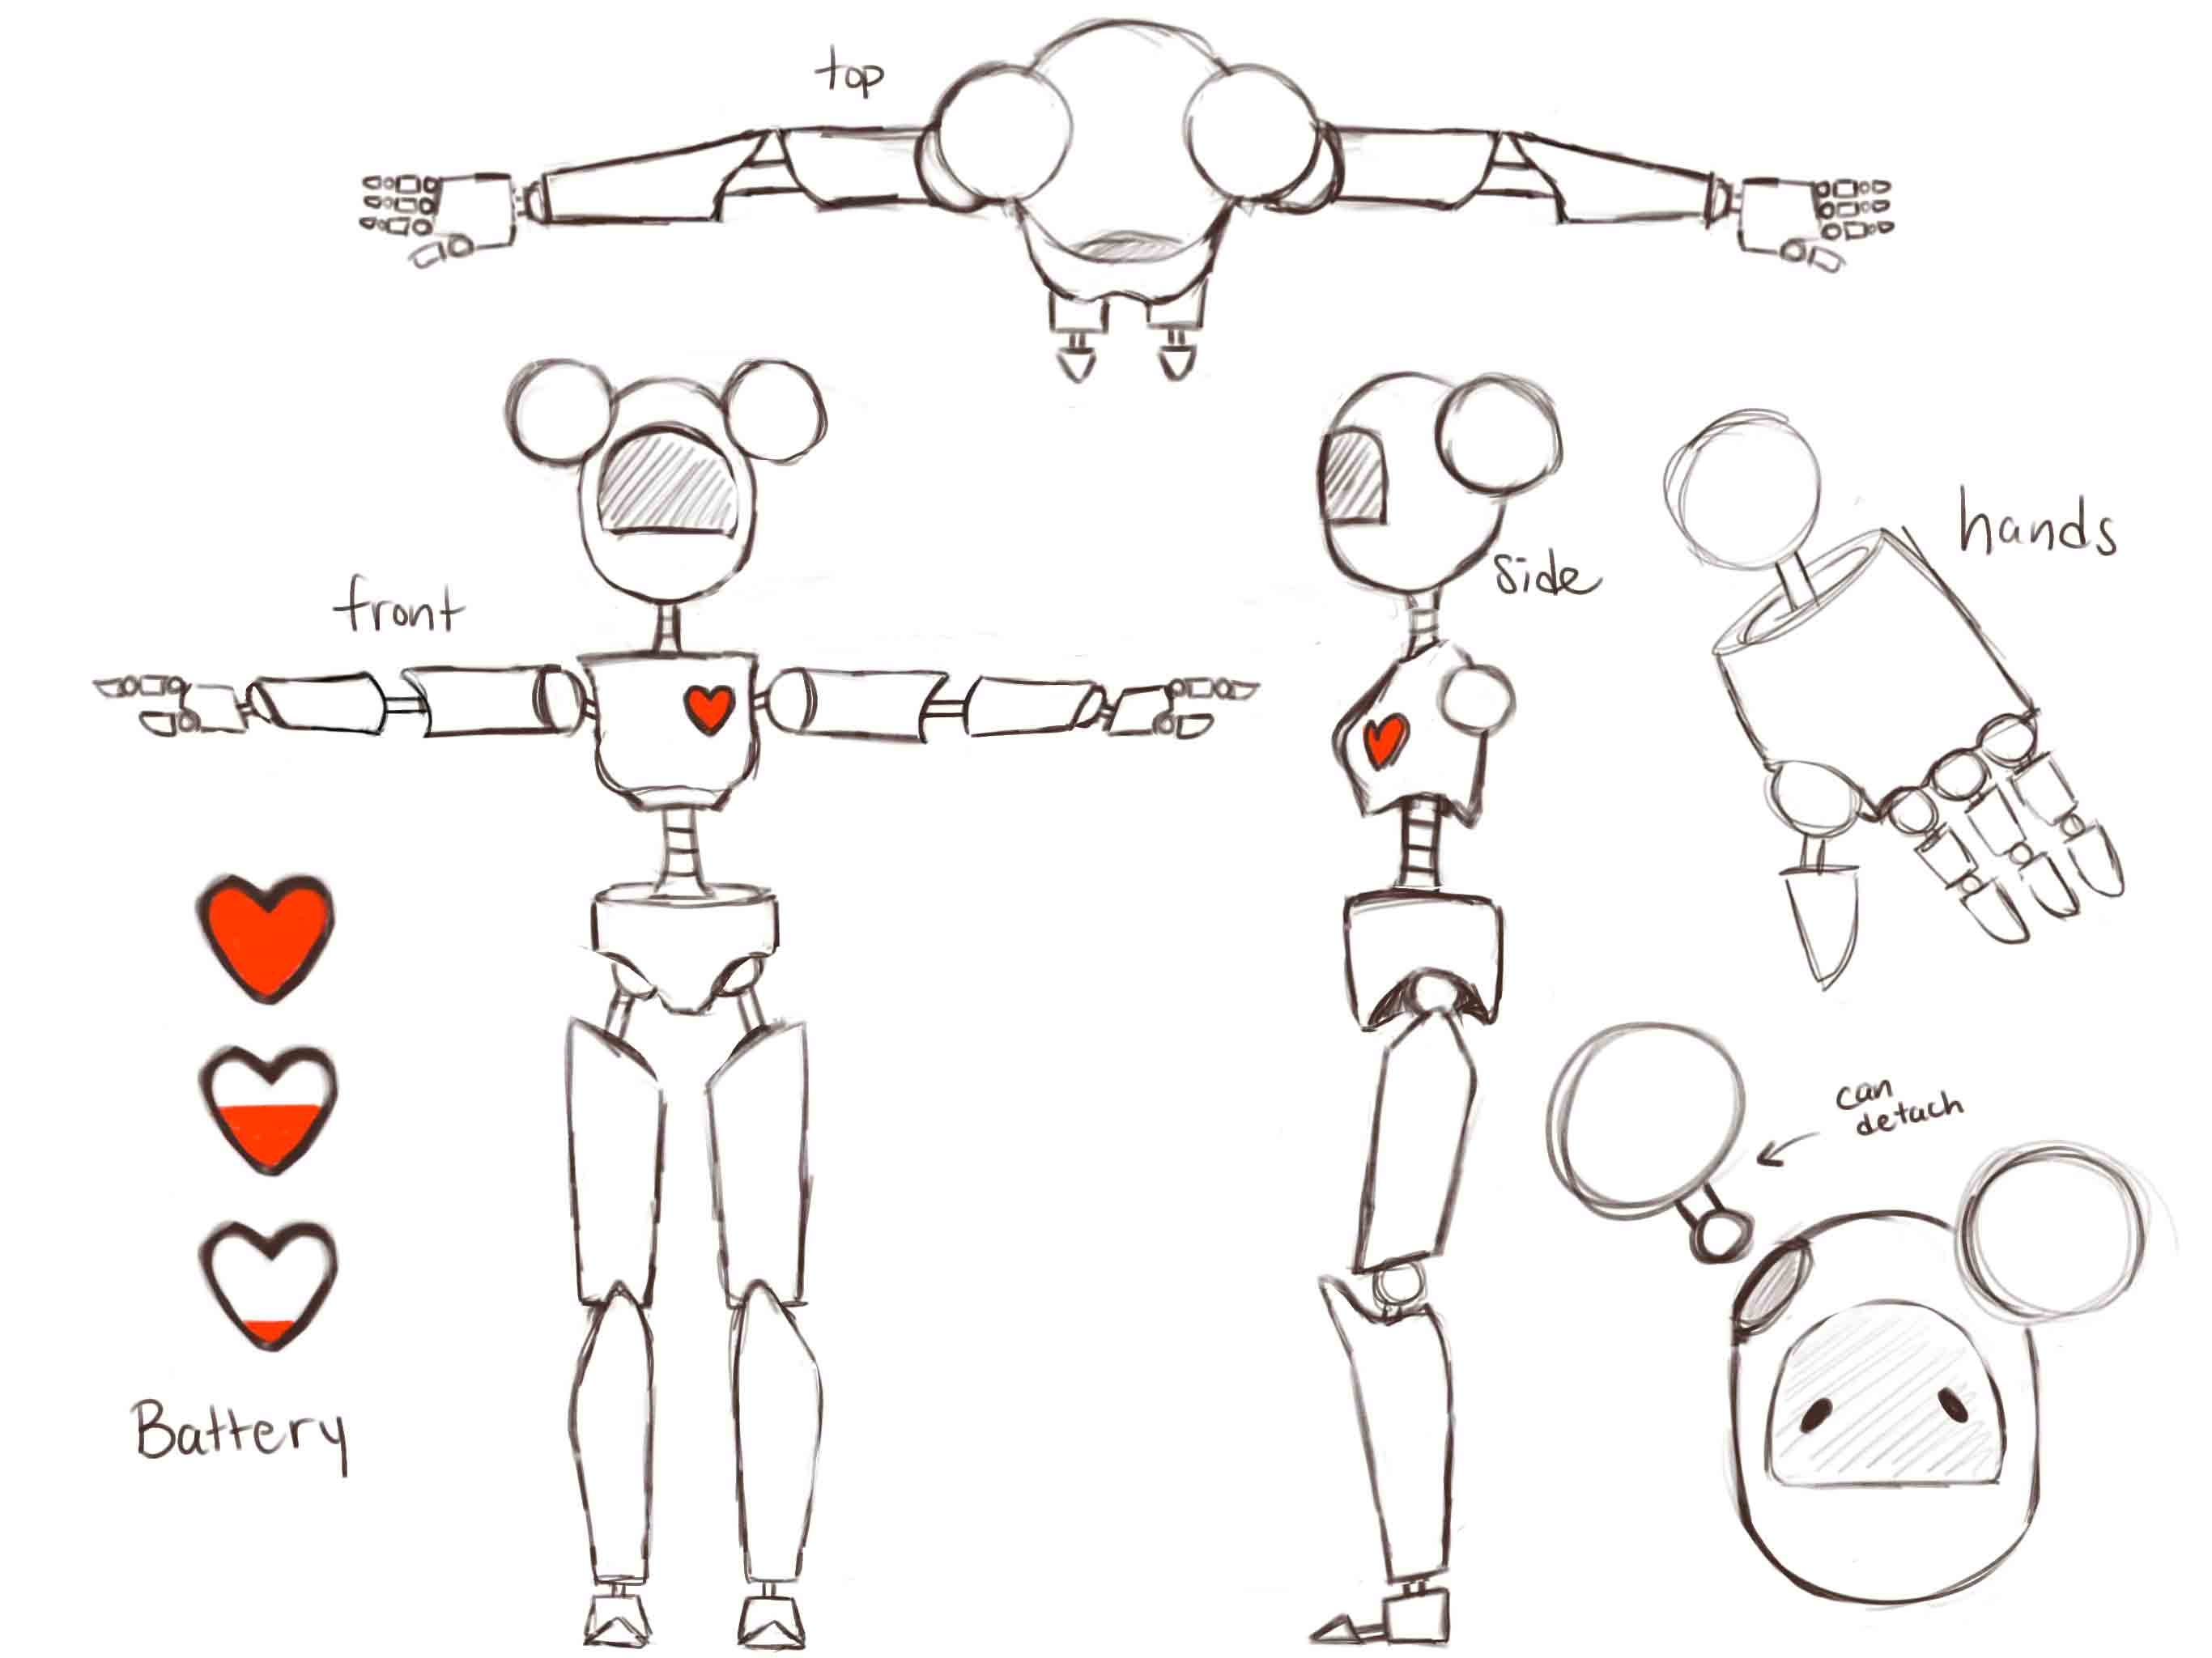 top
front
side
hands
can
detach
Battery